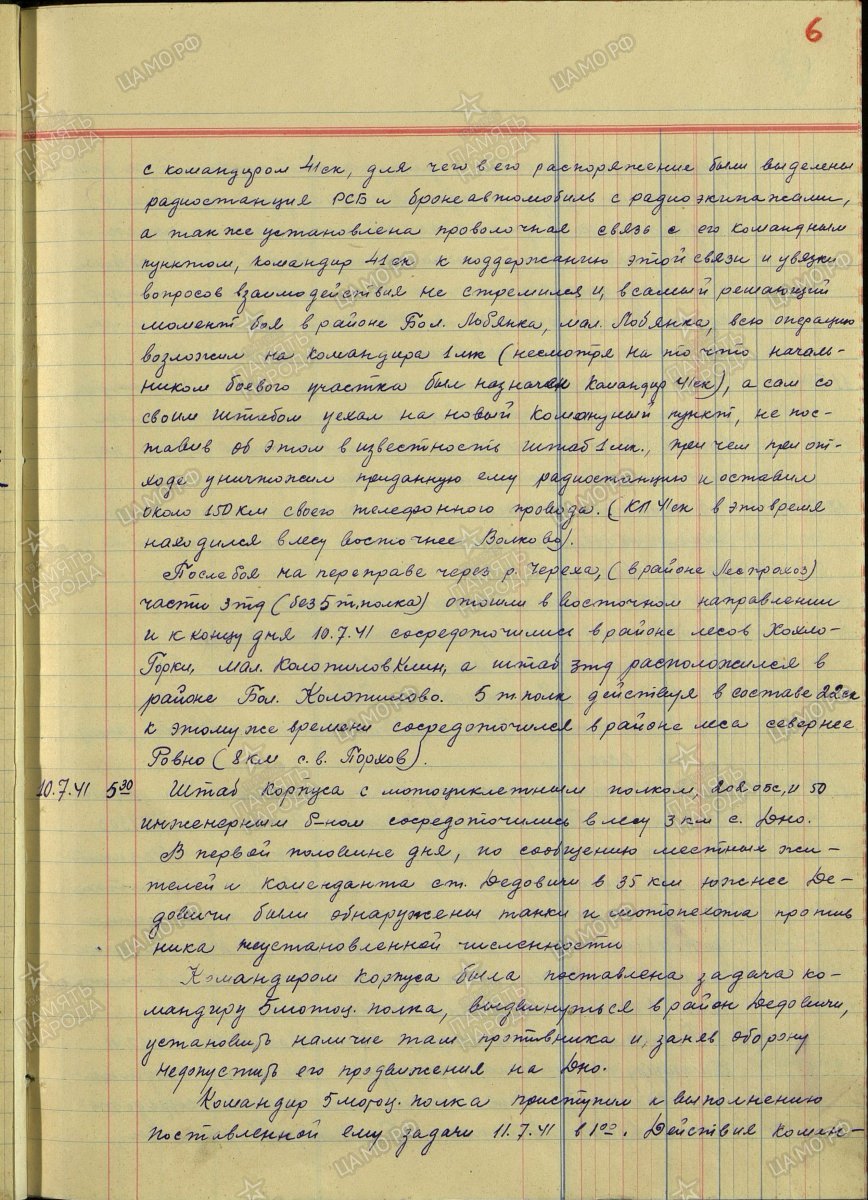 6
с командиром 41ск, для чего в его распоряжение были выделены
радиостанция РСБ и бронеавтомобиль с радиоэкипажами,
а также установлена проволочная связь с его командным
пунктом, командир 41ск к поддержанию этой связи и увязки
вопросов взаимодействия не стремился и, в самый решающий
момент боя в районе Бол. Лобянка, мал. Лобянка, всю операцию
возложил на командира 1мк (несмотря на то что началь-
ником боевого участка был назначен командир 41ск), а сам со
своим штабом уехал на новый командный пункт, не пос-
тавив об этом в известность штаб 1мк., при чем при от-
ходе уничтожил приданную ему радиостанцию и оставил
около 150 км своего телефонного провода. (КП 41ск в это время
находился в лесу восточнее Волково).
После боя на переправе через р. Череха, (в районе Леспрохоз)
части 3тд (без 5 т.полка) отошли в восточном направлении
и к концу дня 10.7.41 сосредоточились в районе лесов Хохло-
Горки, мал. Колотилов Клин, а штаб 3тд расположился в
районе Бол. Колотилово. 5 т.полк действуя в составе 22ск
к этому же времени сосредоточился в районе леса севернее
Ровно (8 км с.в. Порхов).
10.7.41 5 30 Штаб корпуса с мотоциклетным полком, 202 обс, и 50
инженерным б-ном сосредоточились в лесу 3 км с. Дно.
В первой половине дня, по сообщению местных жи-
телей и коменданта ст. Дедовичи в 35 км южнее Де-
довичи были обнаружены танки и мотопехота против
ника неустановленной численности
Командиром корпуса была поставлена задача ко-
мандиру 5 мотоц. полка, выдвинуться в район Дедовичи,
установить наличие там противника и, заняв оборону
недопустить его продвижения на Дно.
Командир 5 мотоц. полка приступил к выполнению
поставленной ему задачи 11.7.41 в 1 00. Действия комен-